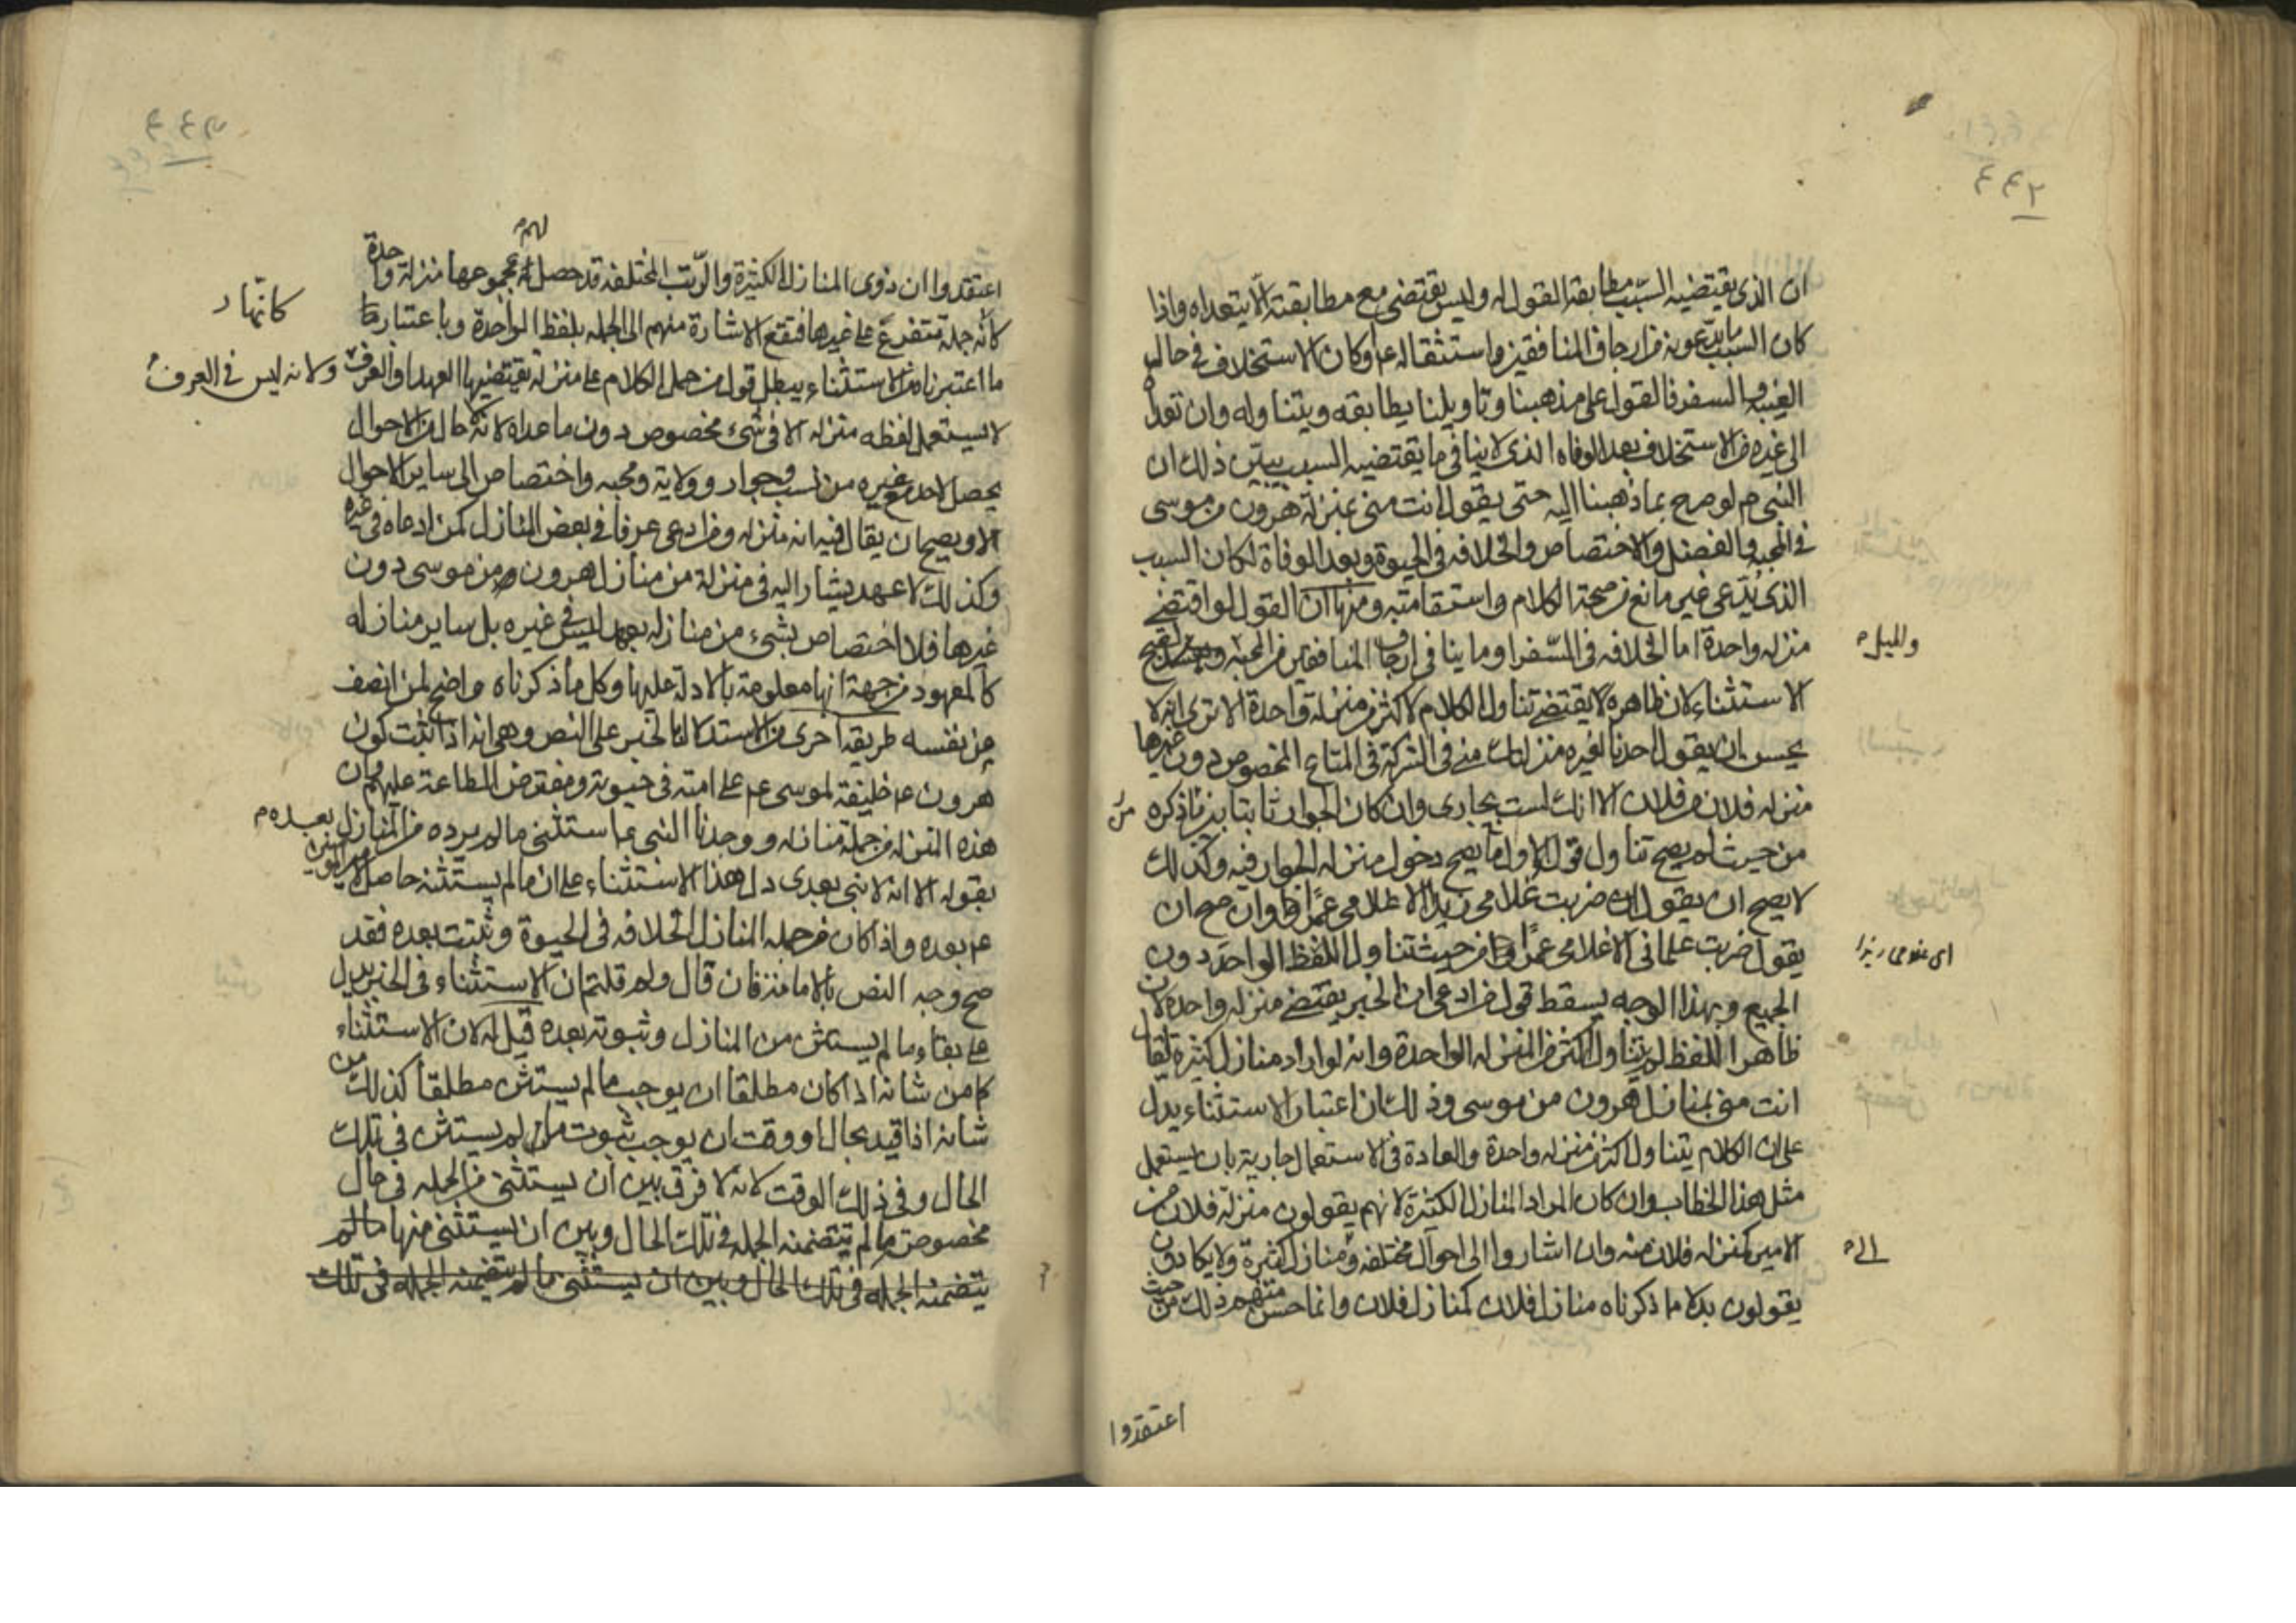 ٤٤٢
ان الذى يقتضيه السبب مطابقة القول له وليس يقتضى مع مطابقته الا يتعداه واذا
كان السبب ما يدعونه من ارجاف المنافقين واستثقاله عم او كان الاستخلاف فى حال
الغيبة والسفر فالقول على مذهبنا وتاويلنا يطابقه ويتناوله وان تعداه
الى غيره من الاستخلاف بعد الوفاه الذى لا ينافى ما يقتضيه السبب يبين ذلك ان
النبى م لو صرح بما ذهبنا اليه حتى يقول انت منى بمنزلة هرون من موسى
فى المحبه والفضل والاختصاص والخلافه فى الحيوة وبعد الوفاة لكان السبب
الذى يدعى غير مانع من صحة الكلام واستقامته ومنها ان القول لو اقتضى
منزله واحدة اما الخلافه فى السفر او ما ينافى ارجاف المنافقين من المحبه لقبح
والميل م
الاستثناء لان ظاهره لا يقتضى تناول الكلام لاكثر من منزلة واحدة الا ترى انه لا
يحسن ان يقول احدنا لغيره منزلتك منى فى الشركة فى المتاع المخصوص دون غيرها
منزله فلان من فلان الا انك لست بجارى وان كان الجوار ثابتا بين من ذكره
من حيث لم يصح تناول قوله الاول ما يصح دخول منزله الجوار فيه وكذلك
لا يصح ان يقول ضربت غلامى زيدا الا غلامى عمرا وان صح ان
يقول ضربت غلمانى الا غلامى عمرا من حيث تناول اللفظ الواحد دون
اى غلامى زيدا
الجميع وبهذا الوجه يسقط قول من ادعى ان الخبر يقتضى منزله واحدة لان
ظاهر اللفظ لم يتناول اكثر من المنزله الواحدة وانه لو اراد منازل كثيرة لقال
انت منى بمنازل هرون من موسى وذلك ان اعتبار الاستثناء يدل
على ان الكلام يتناول اكثر من منزله واحدة والعادة فى الاستعمال جارية بان يستعمل
مثل هذا الخطاب وان كان المراد المنازل الكثيرة لانهم يقولون منزلة فلان من
الامير كمنزله فلان منه وان اشاروا الى احوال مختلفه ومنازل كثيرة ولا يكادون
يقولون بدلا ما ذكرناه منازل فلان كمنازل فلان وانما حسن منهم ذلك من حيث
اعتقدوا
٤٤٣
اعتقدوا ان ذوى المنازل الكثيرة والرتب المختلفه قد حصل لهم بمجموعها منزلة واحدة
كأنه جملة تتفرع على غيرها فتقع الاشارة منهم الى الجمله بلفظ الواحدة وباعتبار
كانها
ما اعتبرناه من الاستثناء يبطل قول من حمل الكلام على منزلة يقتضيها العهد او العرف ولانه ليس فى العرف
لا يستعمل لفظه منزله الا فى شىء مخصوص دون ما عداه لانه لا حال من الاحوال
يحصل لاحد مع غيره من نسب وجوار وولاية ومحبه واختصاص الى ساير الاحوال
الا ويصح ان يقال فيه انه منزله ومن ادعى عرفا فى بعض المنازل كمن ادعاه فى غيره
وكذلك لا عهد يشار اليه فى منزلة من منازل هرون من موسى دون
غيرها فلا اختصاص بشىء من منازله بعهد ليس فى غيره بل ساير منازله
كالمعهود من جهة انها معلومة بالادلة عليها وكل ما ذكرناه واضح لمن انصف
من نفسه طريقة اخرى من الاستدلال بالخبر على النص وهى انه اذا ثبت كون
هرون عم خليفة لموسى عم على امته فى حيوته ومفترض الطاعة عليهم وان
هذه المنزله من جملة منازله ووجدنا النبى عم استثنى ما لم يرده من المنازل بعده م
بقوله الا انه لا نبى بعدى دل هذا الاستثناء على ان ما لم يستثنه حاصل لامير المؤمنين
عم بعده واذا كان من جمله المنازل الخلافه فى الحيوة وثبتت بعده فقد
صح وجه النص بالامامة فان قال ولم قلتم ان الاستثناء فى الخبر يدل
على بقاء ما لم يستثن من المنازل وثبوته بعده قيل له لان الاستثناء
كما من شانه اذا كان مطلقا ان يوجب ما لم يستثن مطلقا كذلك من
شانه اذا قيد بحال او وقت ان يوجب ثبوت ما لم يستثن فى تلك
الحال وفى ذلك الوقت لانه لا فرق بين ان يستثنى من الجمله فى حال
مخصوصة ما لم يتضمنه الجمله فى تلك الحال وبين ان يستثنى منها ما لم
يتضمنه الجمله فى تلك الحال وبين ان يستثنى ما لم يتضمنه الجمله فى تلك